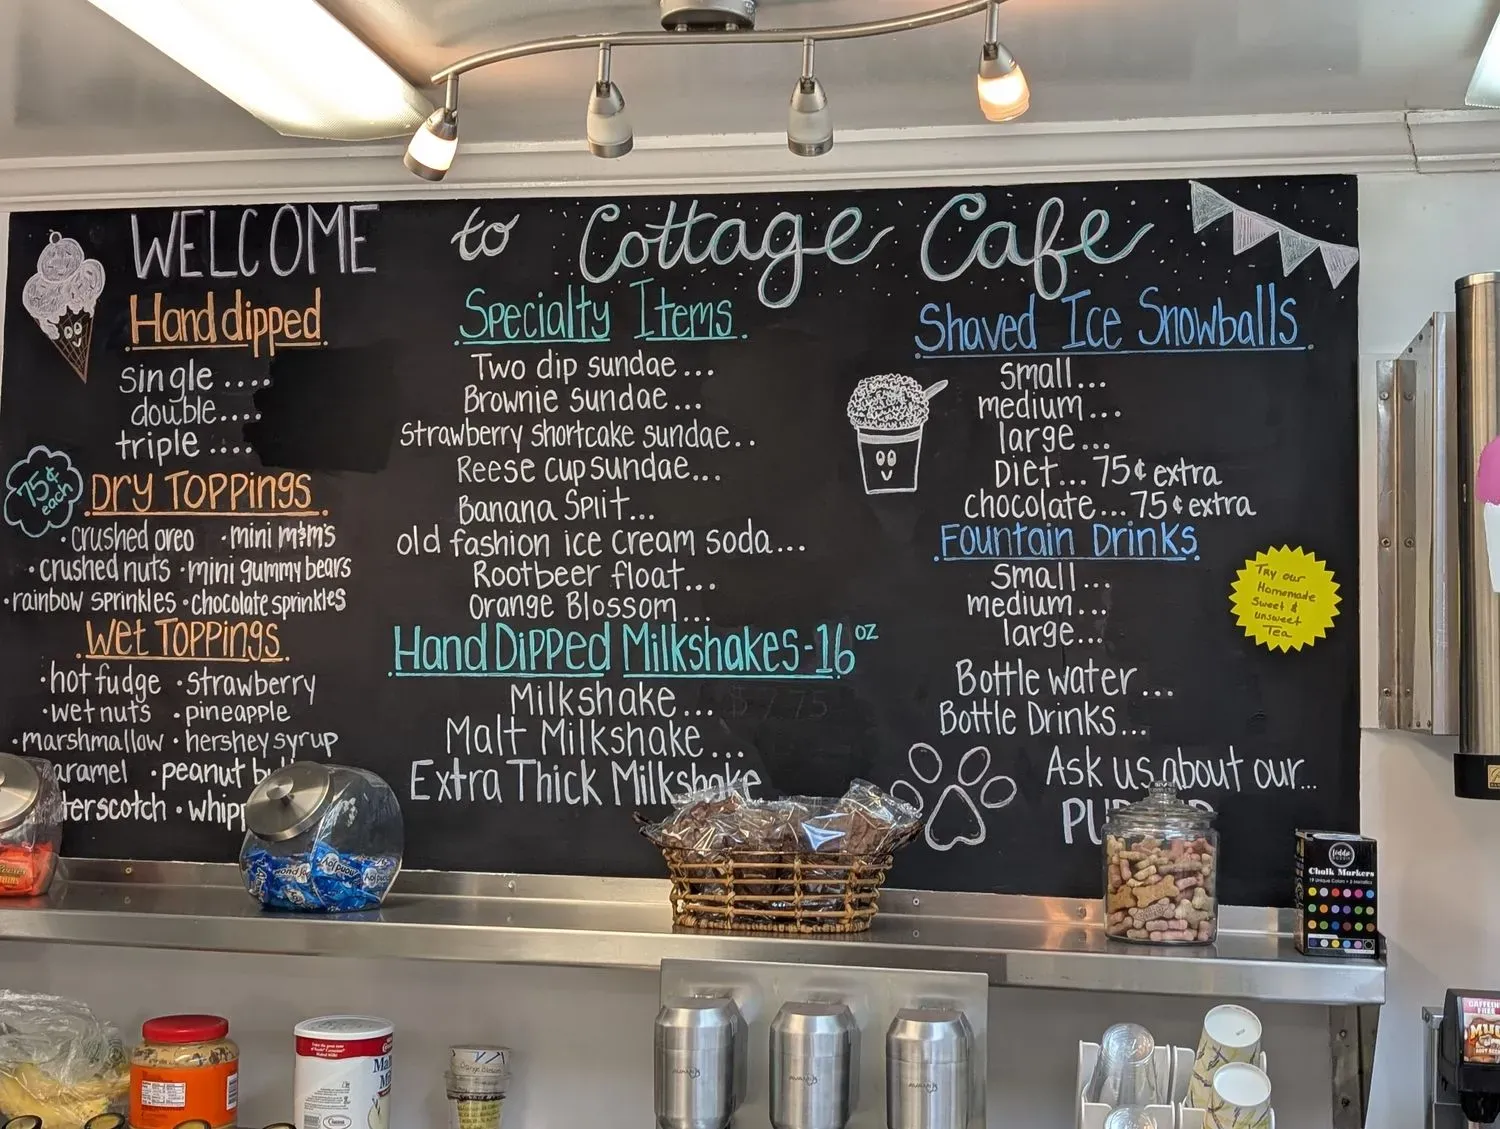 WELCOME to Cottage Cafe
Hand dipped
single ....
double....
triple ....
75¢
each
DRY TOPPINGS
• crushed oreo • mini m&m's
• crushed nuts • mini gummy bears
• rainbow sprinkles • chocolate sprinkles
WET TOPPINGS
• hot fudge • Strawberry
• wet nuts • pineapple
• marshmallow • hershey syrup
aramel • peanut bu
terscotch • whipp
Specialty Items
Two dip sundae...
Brownie sundae...
Strawberry shortcake sundae..
Reese cup sundae...
Banana Split...
old fashion ice cream soda...
Rootbeer float...
Orange Blossom...
Hand Dipped Milkshakes - 16 oz
Milkshake... $7.75
Malt Milkshake...
Extra Thick Milkshake
Shaved Ice Snowballs
small...
medium...
large...
Diet... 75¢ extra
chocolate... 75¢ extra
Fountain Drinks
Small...
medium...
large...
Bottle water...
Bottle Drinks...
Try our
Homemade
Sweet &
unsweet
Tea
Ask us about our...
PUP
Chalk Markers
Almond Joy
Orange Blossom
CAFFEINE
FREE
MUG
ROOT BEER